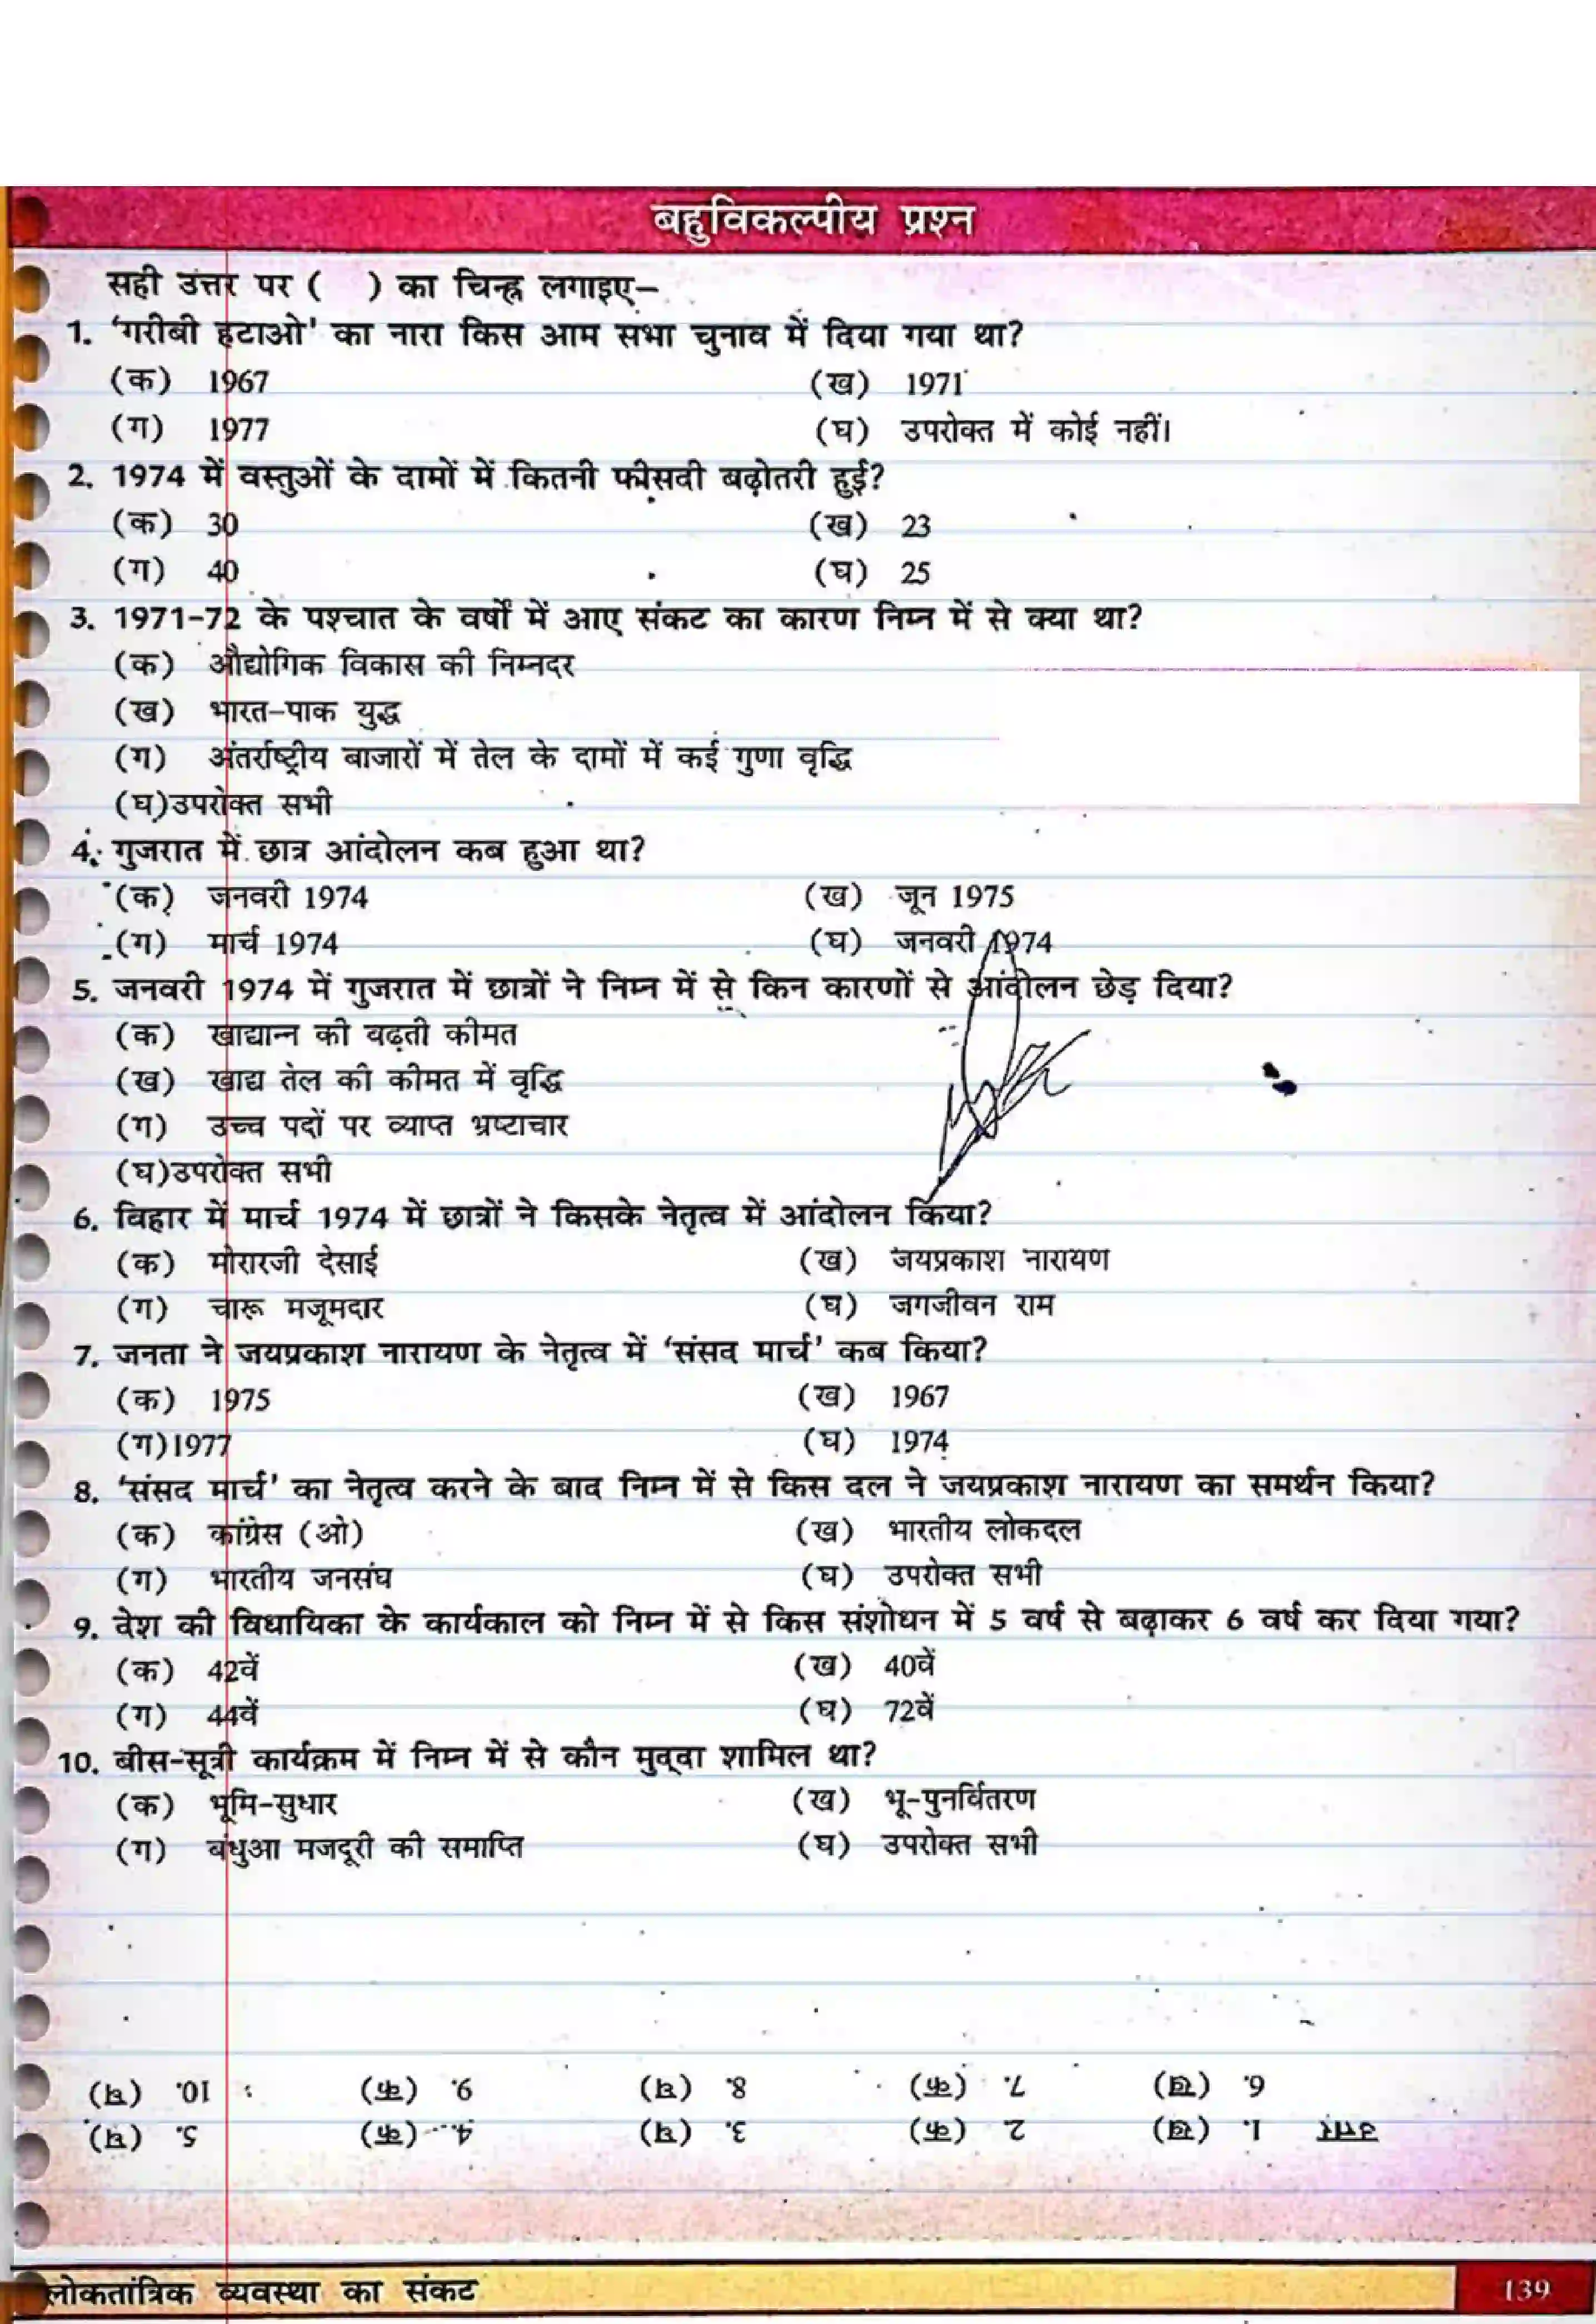 बहुविकल्पीय प्रश्न
सही उत्तर पर ( ) का चिन्ह लगाइए–
1. ‘गरीबी हटाओ’ का नारा किस आम सभा चुनाव में दिया गया था?
(क) 1967 (ख) 1971
(ग) 1977 (घ) उपरोक्त में कोई नहीं।
2. 1974 में वस्तुओं के दामों में कितनी फीसदी बढ़ोतरी हुई?
(क) 30 (ख) 23
(ग) 40 (घ) 25
3. 1971-72 के पश्चात के वर्षों में आए संकट का कारण निम्न में से क्या था?
(क) औद्योगिक विकास की निम्नदर
(ख) भारत-पाक युद्ध
(ग) अंतर्राष्ट्रीय बाजारों में तेल के दामों में कई गुणा वृद्धि
(घ)उपरोक्त सभी
4. गुजरात में छात्र आंदोलन कब हुआ था?
(क) जनवरी 1974 (ख) जून 1975
(ग) मार्च 1974 (घ) जनवरी 1974
5. जनवरी 1974 में गुजरात में छात्रों ने निम्न में से किन कारणों से आंदोलन छेड़ दिया?
(क) खाद्यान्न की बढ़ती कीमत
(ख) खाद्य तेल की कीमत में वृद्धि
(ग) उच्च पदों पर व्याप्त भ्रष्टाचार
(घ)उपरोक्त सभी
6. बिहार में मार्च 1974 में छात्रों ने किसके नेतृत्व में आंदोलन किया?
(क) मोरारजी देसाई (ख) जयप्रकाश नारायण
(ग) चारू मजूमदार (घ) जगजीवन राम
7. जनता ने जयप्रकाश नारायण के नेतृत्व में ‘संसद मार्च’ कब किया?
(क) 1975 (ख) 1967
(ग)1977 (घ) 1974
8. ‘संसद मार्च’ का नेतृत्व करने के बाद निम्न में से किस दल ने जयप्रकाश नारायण का समर्थन किया?
(क) कांग्रेस (ओ) (ख) भारतीय लोकदल
(ग) भारतीय जनसंघ (घ) उपरोक्त सभी
9. देश की विधायिका के कार्यकाल को निम्न में से किस संशोधन में 5 वर्ष से बढ़ाकर 6 वर्ष कर दिया गया?
(क) 42वें (ख) 40वें
(ग) 44वें (घ) 72वें
10. बीस-सूत्री कार्यक्रम में निम्न में से कौन मुद्दा शामिल था?
(क) भूमि-सुधार (ख) भू-पुनर्वितरण
(ग) बंधुआ मजदूरी की समाप्ति (घ) उपरोक्त सभी
उत्तर 1. (ख) 2 (क) 3. (घ) 4. (क) 5. (घ)
6. (ख) 7. (क) 8. (घ) 9. (क) 10. (घ)
लोकतांत्रिक व्यवस्था का संकट 139